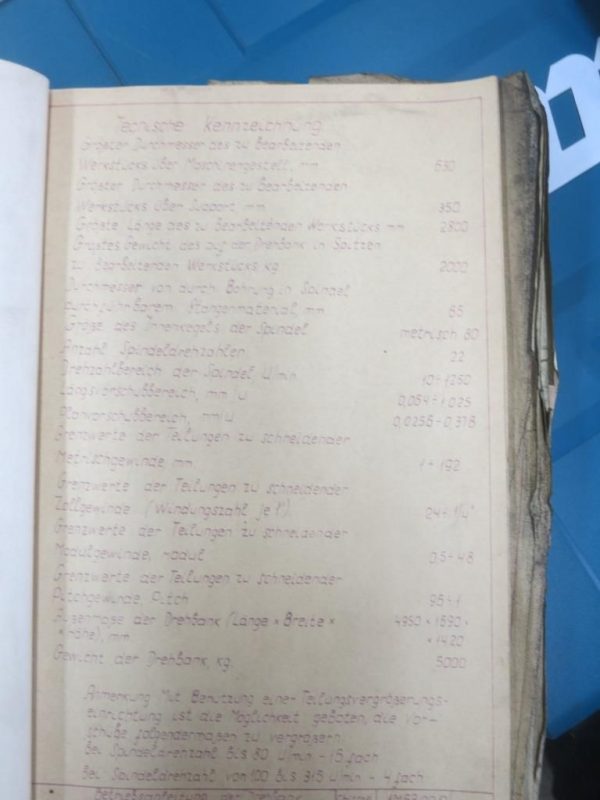 Technische Kennzeichnung
Größter Durchmesser des zu bearbeitenden
Werkstücks über Maschinengestell, mm 630
Größter Durchmesser des zu bearbeitenden
Werkstücks über Support, mm 350
Größte Länge des zu bearbeitenden Werkstücks mm 2800
Größtes Gewicht des auf der Drehbank in Spitzen
zu bearbeitenden Werkstücks kg 2000
Durchmesser von durch Bohrung in Spindel
durchführbarem Stangenmaterial, mm 65
Größe des Innenkegels der Spindel metrisch 80
Anzahl Spindeldrehzahlen 22
Drehzahlbereich der Spindel U/min 10÷1250
Längsvorschubbereich, mm/U 0,064÷1,025
Planvorschubbereich, mm/U 0,0256÷0,378
Grenzwerte der Teilungen zu schneidender
Metrischgewinde, mm 1÷192
Grenzwerte der Teilungen zu schneidender
Zollgewinde (Windungszahl je 1") 24÷1/4"
Grenzwerte der Teilungen zu schneidender
Modulgewinde, Modul 0,5÷48
Grenzwerte der Teilungen zu schneidender
Pitchgewinde, Pitch 96÷1
Außenmaße der Drehbank (Länge × Breite × 4950 × 1690 ×
× Höhe), mm × 1420
Gewicht der Drehbank, kg 5000
Anmerkung Mit Benutzung einer Teilungsvergrößerungs-
einrichtung ist die Möglichkeit geboten, die Vor-
schübe folgendermaßen zu vergrößern:
Bei Spindeldrehzahl bis 80 U/min - 15 fach
Bei Spindeldrehzahl von 100 bis 315 U/min - 4 fach
Betriebsanleitung der Drehbank